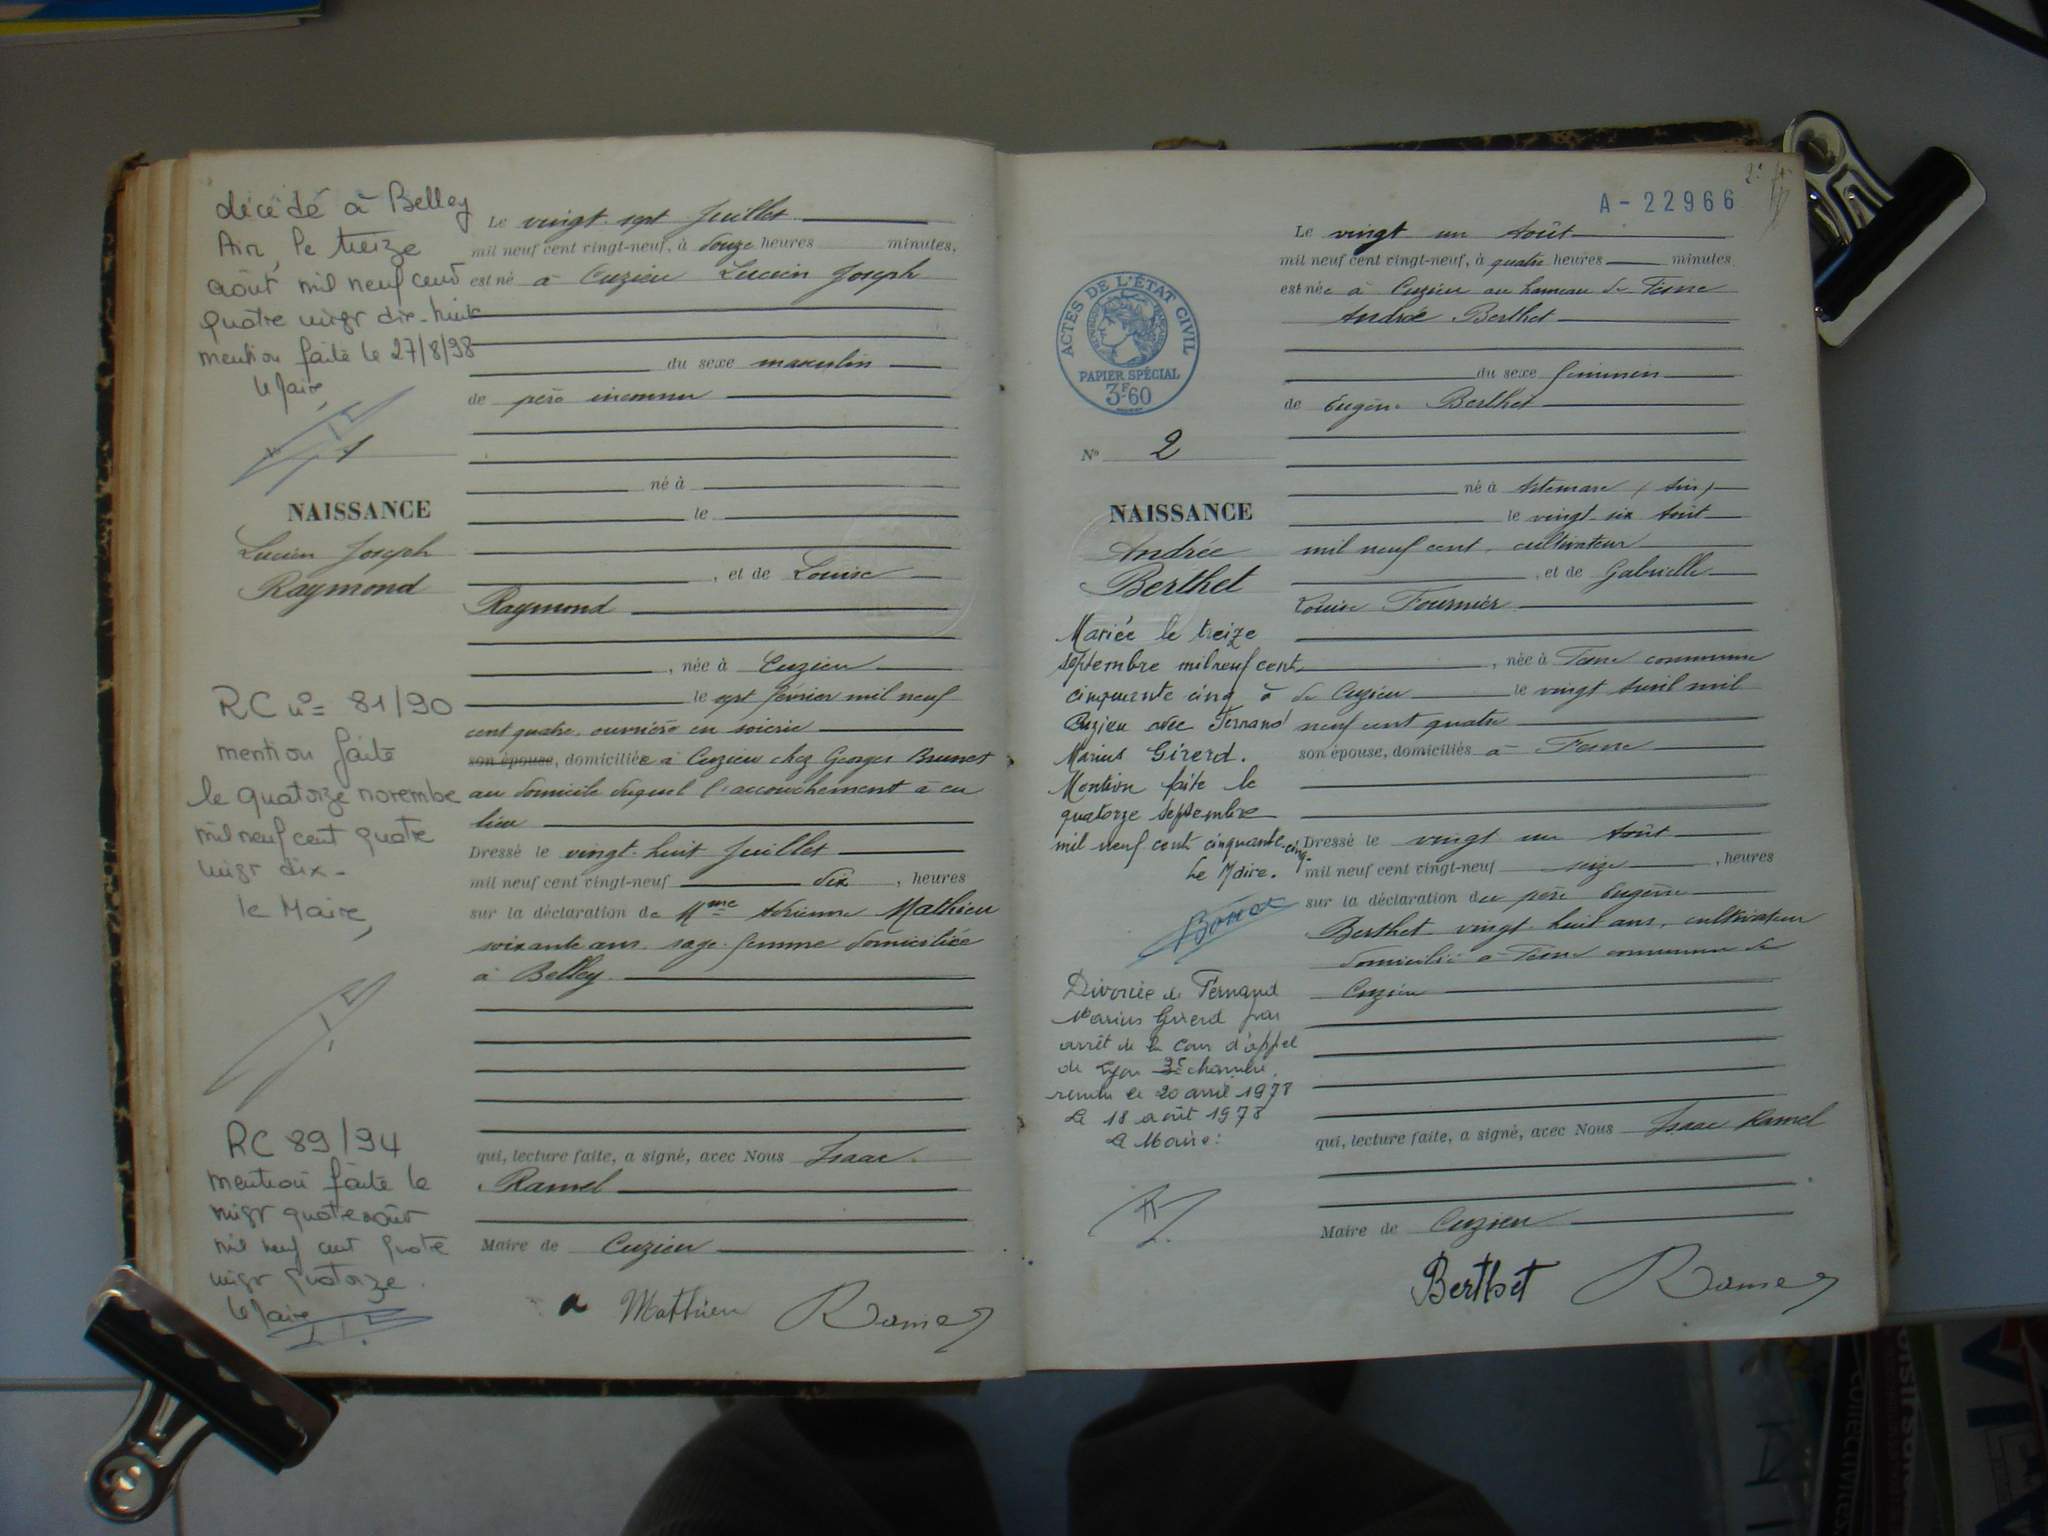 décédé à Belley
Ain, le treize
août mil neuf cent
quatre vingt dix-huit
mention faite le 27/8/98
le Maire,
1
NAISSANCE
Lucien Joseph
Raymond
RC n° = 81/90
mention faite
le quatorze novembre
mil neuf cent quatre
vingt dix -
le Maire,
RC 89/94
mention faite le
vingt quatre août
mil neuf cent quatre
vingt quatorze.
le Maire
Le vingt-sept Juillet
mil neuf cent vingt-neuf, à douze heures minutes,
est né à Cuzieu Lucien Joseph
du sexe masculin
de père inconnu
né à
le
, et de Louise
Raymond
, née à Cuzieu
le sept février mil neuf
cent quatre, ouvrière en soierie
son épouse, domiciliée à Cuzieu chez Georges Brunet
au domicile duquel l'accouchement à eu
lieu
Dressé le vingt-huit Juillet
mil neuf cent vingt-neuf dix, heures
sur la déclaration de Mme Adrienne Mathieu
soixante ans, sage-femme domiciliée
à Belley
qui, lecture faite, a signé, avec Nous Isaac
Ramel
Maire de Cuzieu
a Mathieu Ramel
A - 22966
ACTES DE L'ÉTAT CIVIL
PAPIER SPÉCIAL
3F.60
N° 2
NAISSANCE
Andrée
Berthet
Mariée le treize
septembre mil neuf cent
cinquante cinq à
Cuzieu avec Fernand
Marius Girerd.
Mention faite le
quatorze septembre
mil neuf cent cinquante-cinq.
Le Maire.
Divorcée de Fernand
Marius Girerd par
arrêt de la Cour d'appel
de Lyon 3e chambre
rendu le 20 avril 1978
Le 18 août 1978
Le Maire:
Le vingt un Août
mil neuf cent vingt-neuf, à quatre heures minutes
est née à Cuzieu au hameau de
Andrée Berthet
du sexe féminin
de Eugène Berthet
né à Artemare (Ain)
le vingt-six Août
mil neuf cent, cultivateur
, et de Gabrielle
Louise Fournier
, née à commune
de Cuzieu le vingt Avril mil
neuf cent quatre
son épouse, domiciliés à
Dressé le vingt un Août
mil neuf cent vingt-neuf seize, heures
sur la déclaration du père Eugène
Berthet vingt-huit ans, cultivateur
domicilié à commune de
Cuzieu
qui, lecture faite, a signé, avec Nous Isaac Ramel
Maire de Cuzieu
Berthet Ramel